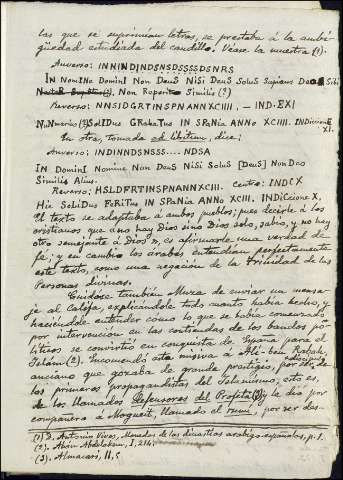 las que se suprimían letras, se prestaba á la ambi-
güedad estudiada del caudillo. Véase la muestra (1).
Anverso: INNINDINDSNSDSSSSDSNRS
IN NomINe DominI Non DeuS NiSi DeuS SoluS Sapiens Deo Sibi
Non Similis (?)
Reverso: NNSIDGRTINSPNANNXCIIII. – IND.EXI
NuNmus (?) SolIDus in SPaNia ANNo XCIIII. INDiccione
XI.
En otra, tomada ad libitum, dice:
Anverso: INDINNDSNSSS.... NDSA
IN DominI Nomine Non DeuS NiSi SoluS [DeuS] Non Deo
Similis Alius.
Reverso: HSLDFRTINSPNANNXCIII. Centro: INDCX
Hic SoliDus FeRiTus IN SPania ANno XCIII, INDiCcione X.
El texto se adaptaba á ambos pueblos; pues decirle á los
cristianos que "no hay Dios sino Dios solo, sabio, y no hay
otro semejante á Dios", es afirmarle una verdad de
fé; y en cambio los árabes entendían perfectamente
este texto, como una negación de la Trinidad de las
Personas divinas.
Cuidóse también Muza de enviar un mensa-
je al Califa, explicándole todo cuanto había hecho, y
haciéndole entender cómo lo que se había comenzado
por intervención en las contiendas de los bandos po-
líticos se convirtió en conquista de España para el
Islám (2). Encomendó esta misiva á Alí-ben Rabah,
anciano que gozaba de grande prestigio, por ser de
los primeros propagandistas del Islamismo, esto es,
de los llamados Defensores del Profeta (3) y le dió por
compañero á Mogueit, llamado el rumí, por ser des-
(1) D. Antonio Vives, Monedas de las dinastías arábigo-españolas, p. 1.
(2). Abdelakem, I, 214.
(3). Almacari, II,